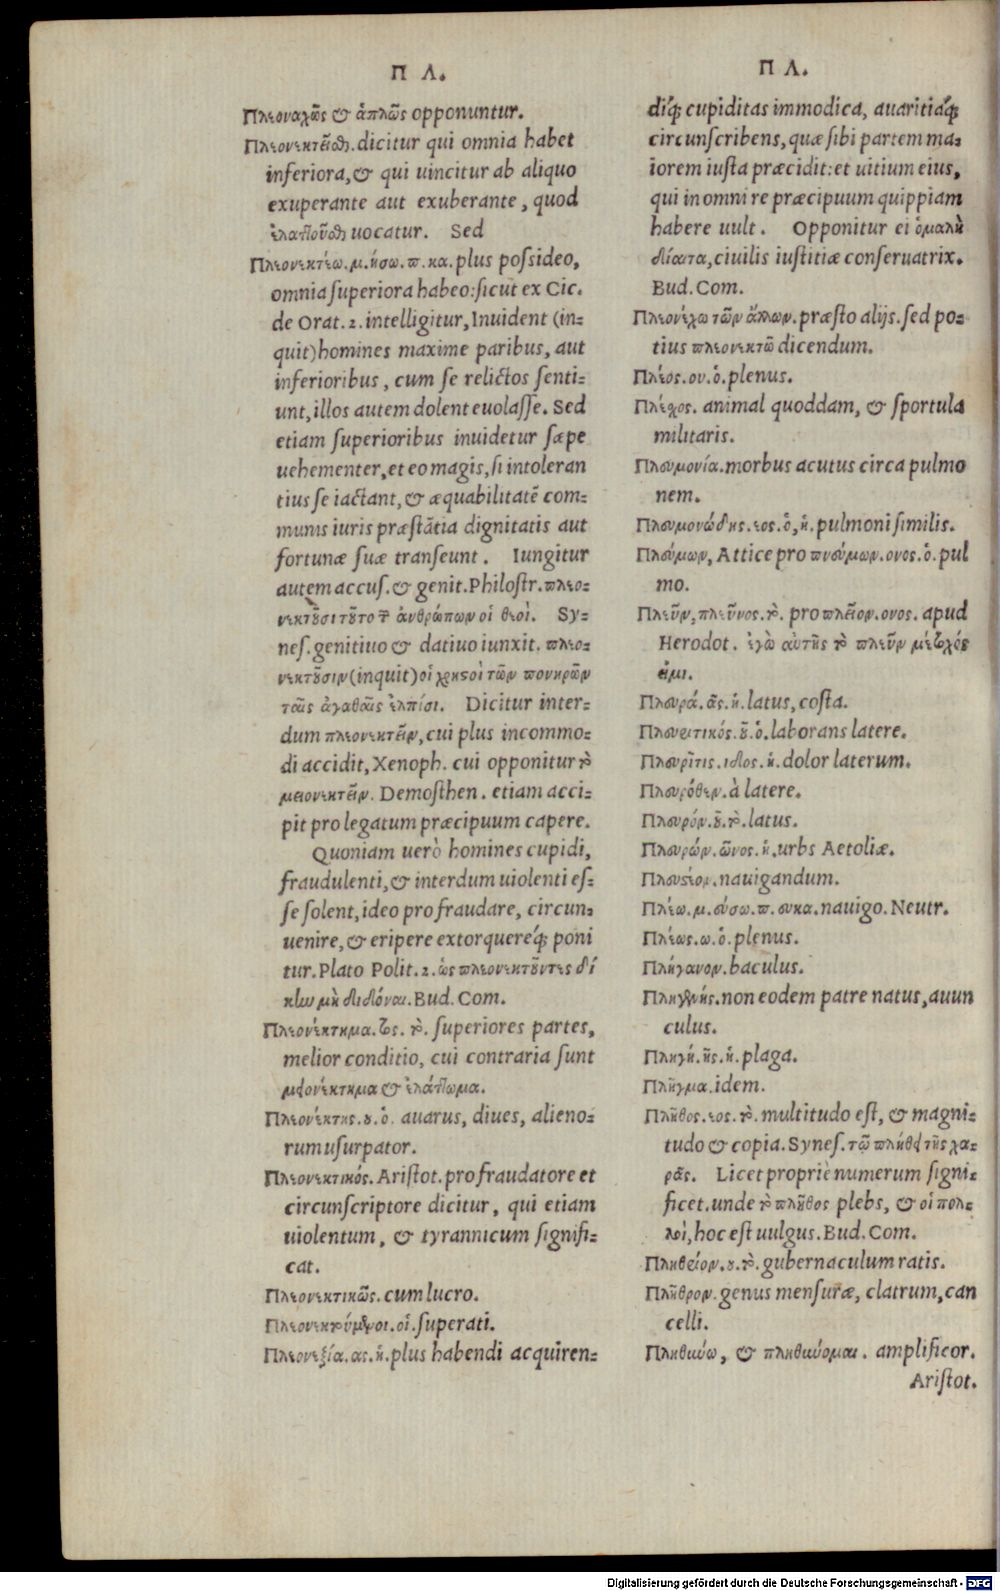 Π Λ.
Πλεοναχῶς & ἁπλῶς opponuntur.
Πλεονεκτεῖσθαι. dicitur qui omnia habet
inferiora, & qui uincitur ab aliquo
exuperante aut exuberante, quod
ἐλαττοῦσθαι uocatur. Sed
Πλεονεκτέω. μ. ήσω. π. κα. plus possideo,
omnia superiora habeo: sicut ex Cic.
de Orat. 2. intelligitur, Inuident (in=
quit) homines maxime paribus, aut
inferioribus, cum se relictos senti=
unt, illos autem dolent euolasse. Sed
etiam superioribus inuidetur sæpe
uehementer, et eo magis, si intoleran
tius se iactant, & æquabilitatē com=
munis iuris præstātia dignitatis aut
fortunæ suæ transeunt. Iungitur
autem accus. & genit. Philostr. πλεο=
νεκτοῦσι τοῦτο τῶν ἀνθρώπων οἱ θεοί. Sy=
nes. genitiuo & datiuo iunxit. πλεο=
νεκτοῦσιν (inquit) οἱ χρηστοὶ τῶν πονηρῶν
ταῖς ἀγαθαῖς ἐλπίσι. Dicitur inter=
dum πλεονεκτεῖν, cui plus incommo=
di accidit, Xenoph. cui opponitur τὸ
μειονεκτεῖν. Demosthen. etiam acci=
pit pro legatum præcipuum capere.
Quoniam uerò homines cupidi,
fraudulenti, & interdum uiolenti es=
se solent, ideo pro fraudare, circun=
uenire, & eripere extorquereq́; poni
tur. Plato Polit. 2. ὡς πλεονεκτοῦντες δί
κην μὴ διδόναι. Bud. Com.
Πλεονέκτημα. τος. τὸ. superiores partes,
melior conditio, cui contraria sunt
μειονέκτημα & ἐλάττωμα.
Πλεονέκτης. ου. ὁ. auarus, diues, alieno=
rum usurpator.
Πλεονεκτικός. Aristot. pro fraudatore et
circunscriptore dicitur, qui etiam
uiolentum, & tyrannicum signifi=
cat.
Πλεονεκτικῶς. cum lucro.
Πλεονεκτούμενοι. οἱ. superati.
Πλεονεξία. ας. ἡ. plus habendi acquiren=
Π Λ.
diq́; cupiditas immodica, auaritiaq́;
circunscribens, quæ sibi partem ma=
iorem iusta præcidit: et uitium eius,
qui in omni re præcipuum quippiam
habere uult. Opponitur ei ὁμαλὴ
δίαιτα, ciuilis iustitiæ conseruatrix.
Bud. Com.
Πλεονέχω τῶν ἄλλων. præsto alijs. sed po=
tius πλεονεκτῶ dicendum.
Πλέος. ου. ὁ. plenus.
Πλέχος. animal quoddam, & sportula
militaris.
Πλευμονία. morbus acutus circa pulmo
nem.
Πλευμονώδης. εος. ὁ, ἡ. pulmoni similis.
Πλεύμων, Attice pro πνεύμων. ονος. ὁ. pul
mo.
Πλεῦν, πλεῦνος. τὸ. pro πλεῖον. ονος. apud
Herodot. ἐγὼ αὐτῆς τὸ πλεῦν μέτοχός
εἰμι.
Πλευρά. ᾶς. ἡ. latus, costa.
Πλευριτικός. οῦ. ὁ. laborans latere.
Πλευρῖτις. ιδος. ἡ. dolor laterum.
Πλευρόθεν. à latere.
Πλευρόν. οῦ. τὸ. latus.
Πλευρών. ῶνος. ἡ. urbs Aetoliæ.
Πλευστέον. nauigandum.
Πλέω. μ. εύσω. π. ευκα. nauigo. Neutr.
Πλέως. ω. ὁ. plenus.
Πλήγανον. baculus.
Πληγενής. non eodem patre natus, auun
culus.
Πληγή. ῆς. ἡ. plaga.
Πλῆγμα. idem.
Πλῆθος. εος. τὸ. multitudo est, & magni=
tudo & copia. Synes. τῷ πλήθει τῆς χα=
ρᾶς. Licet propriè numerum signi=
ficet. unde τὸ πλῆθος plebs, & οἱ πολ=
λοὶ, hoc est uulgus. Bud. Com.
Πληθεῖον. ου. τὸ. gubernaculum ratis.
Πλῆθρον. genus mensuræ, clatrum, can
celli.
Πληθύω, & πληθύομαι. amplificor.
Aristot.
Digitalisierung gefördert durch die Deutsche Forschungsgemeinschaft - DFG